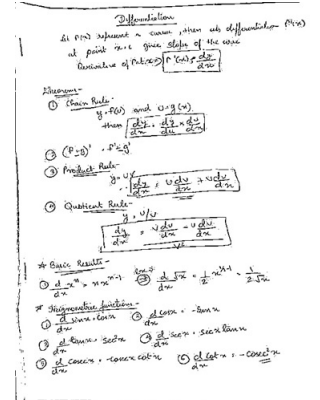 Differentiation
Let P(x) represent a curve, then its differentiation P'(x)
at point x=c give slope of the curve
Derivative of P at x → P'(x) = dy/dx
Theorems -
① Chain Rule -
y = f(u) and u = g(x)
then dy/dx = dy/du × du/dx
② (f ± g)' = f' ± g'
③ Product Rule -
y = uv
∴ dy/dx = u dv/dx + v du/dx
④ Quotient Rule -
y = u/v
dy/dx = v du/dx - u dv/dx / v²
* Basic Results -
① d/dx xⁿ = n xⁿ⁻¹ d/dx √x = 1/2 x^(1/2-1) = 1/2√x
* Trigonometric functions -
① d/dx sinx = cosx ② d/dx cosx = -sinx
③ d/dx tanx = sec²x ④ d/dx secx = secx tanx
⑤ d/dx cosecx = -cosecx cotx ⑥ d/dx cotx = -cosec²x